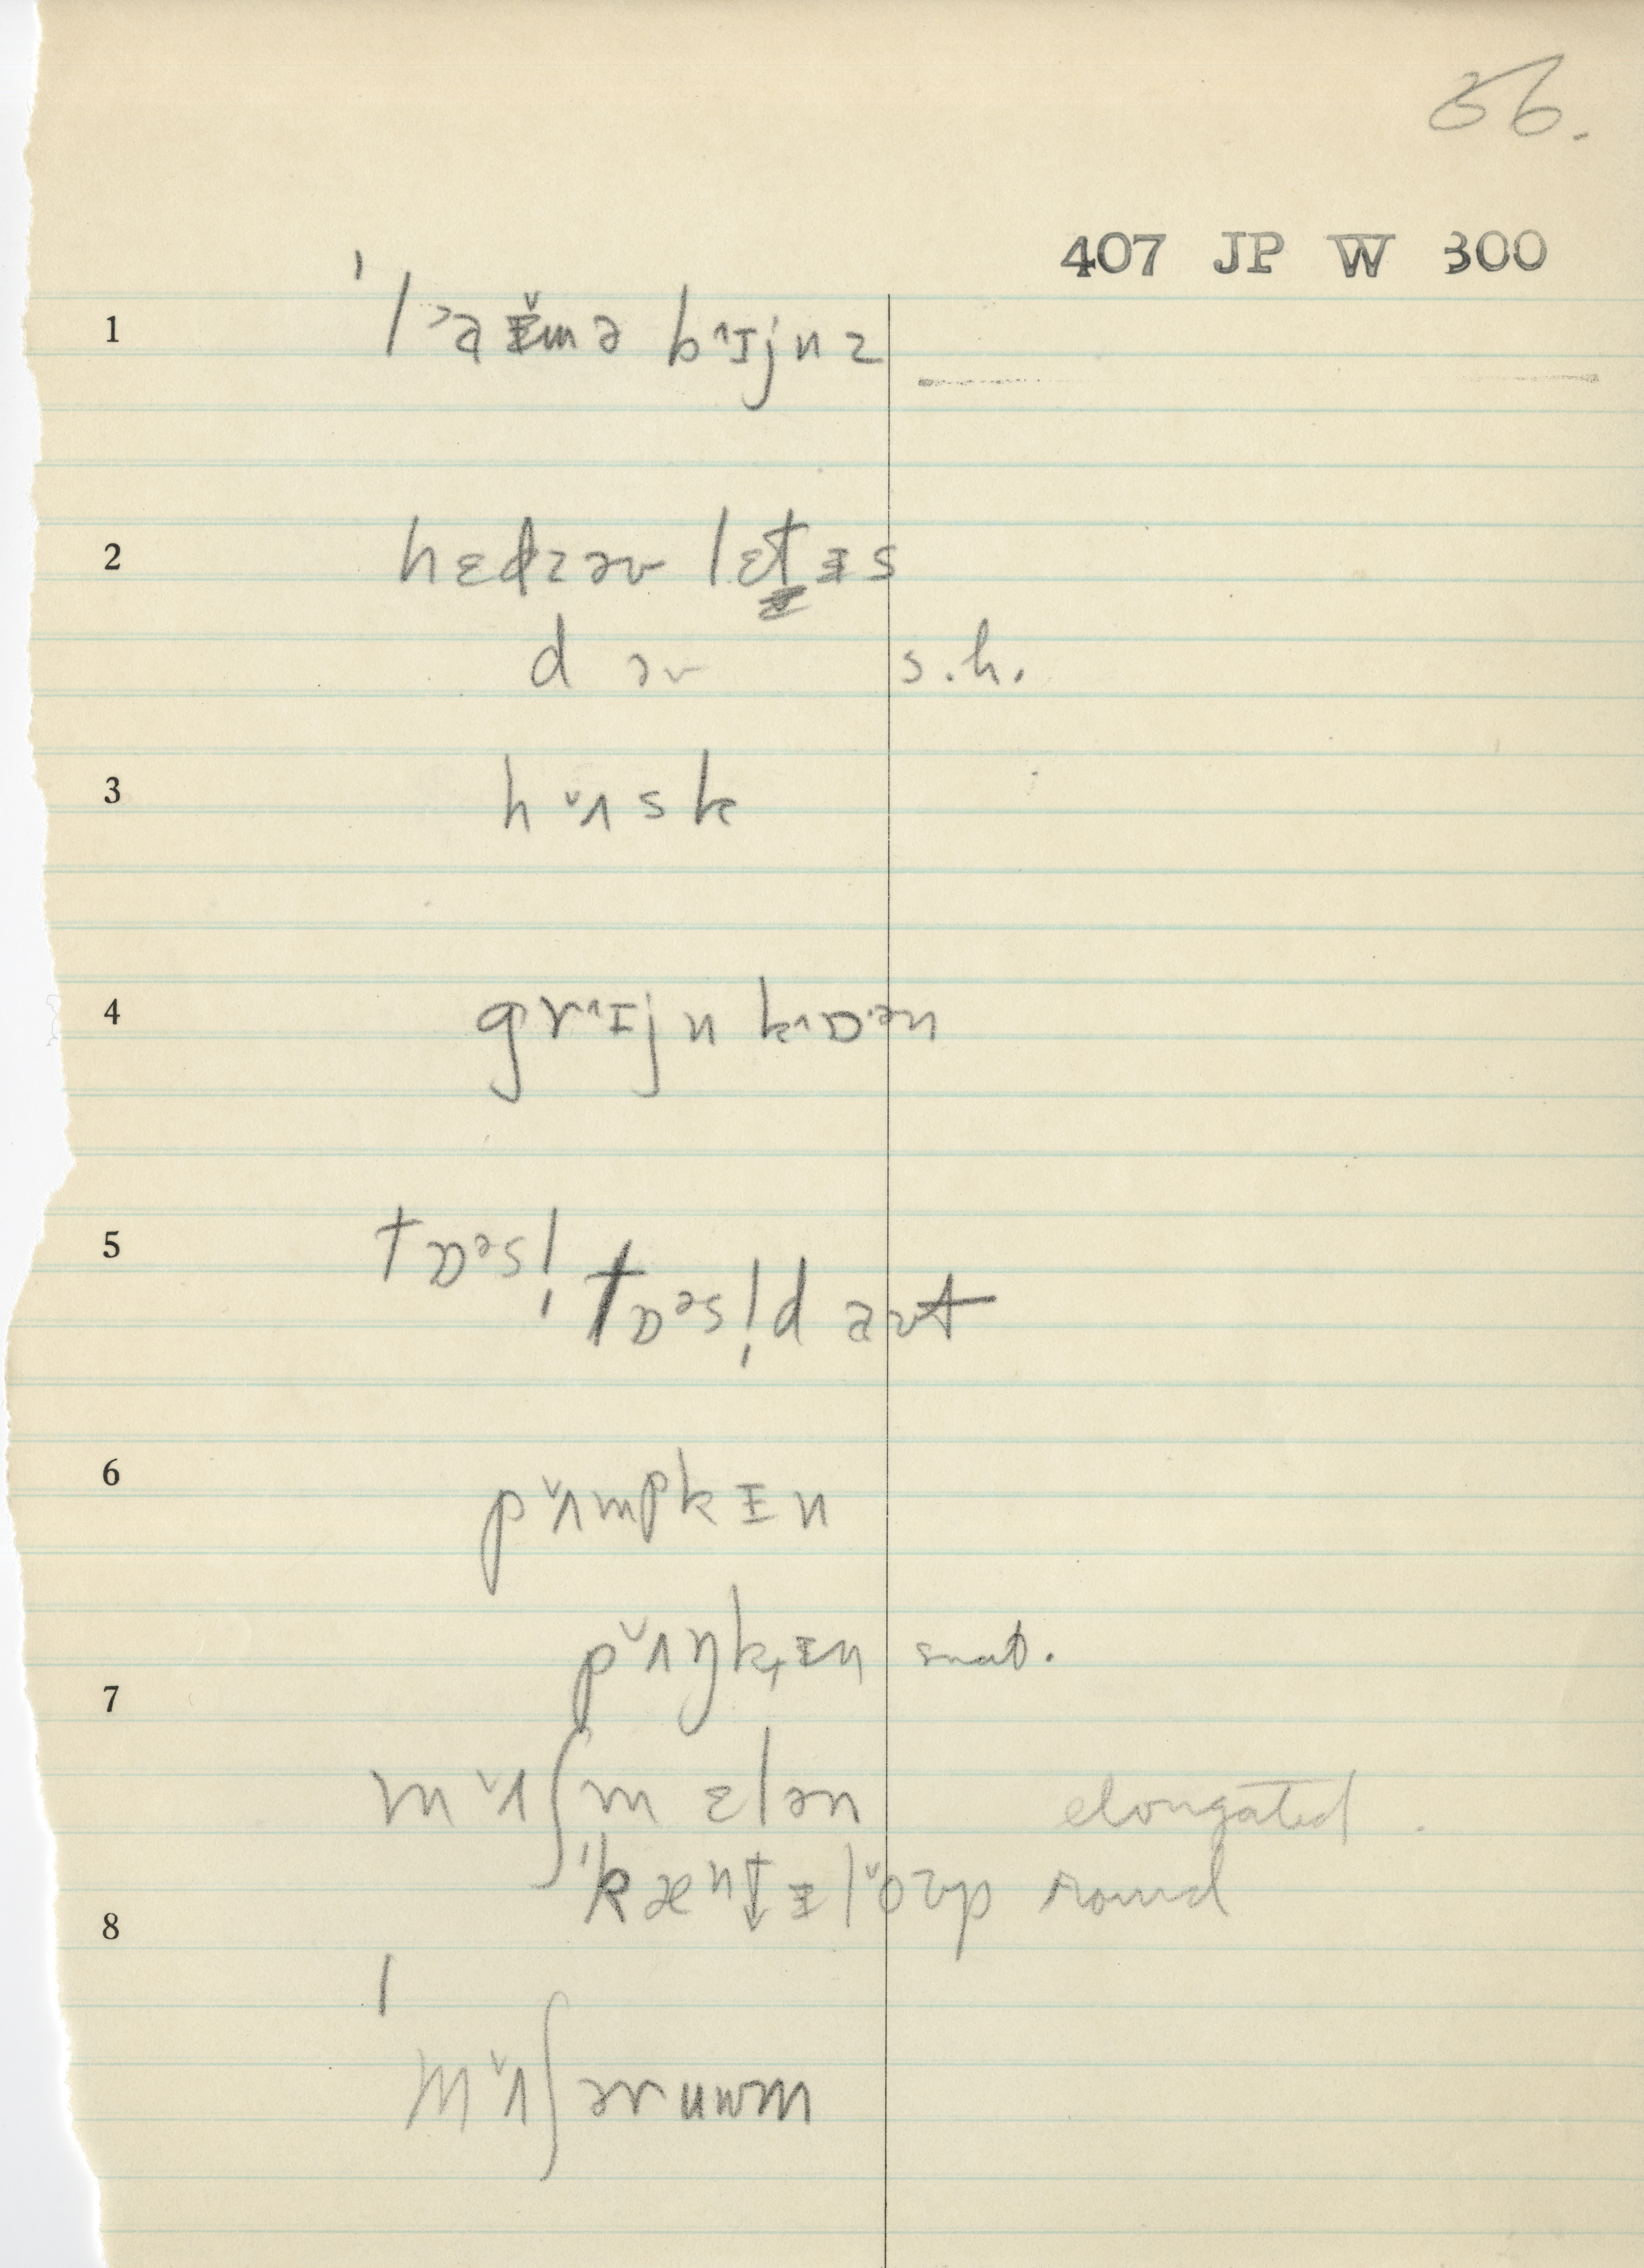 56.
407 JP W 300
1 ˈl˃aɨ̆mə b˄ɪjnz
2 hɛdzəv lɛt̬ɨs
d əv s.h.
3 h˅ʌsk
4 gr˄ɪjn k˄ɒ·ᵊn
5 tɒᵊsl̩ tɒᵊsl̩d aʊt
6 p˅ʌmpkɨn
p˅ʌŋk̟ɨn
7 m˅ʌʃmɛlən elongated.
ˈkæntɨl˅oʊp round
8 ˈm˅ʌʃəruwm